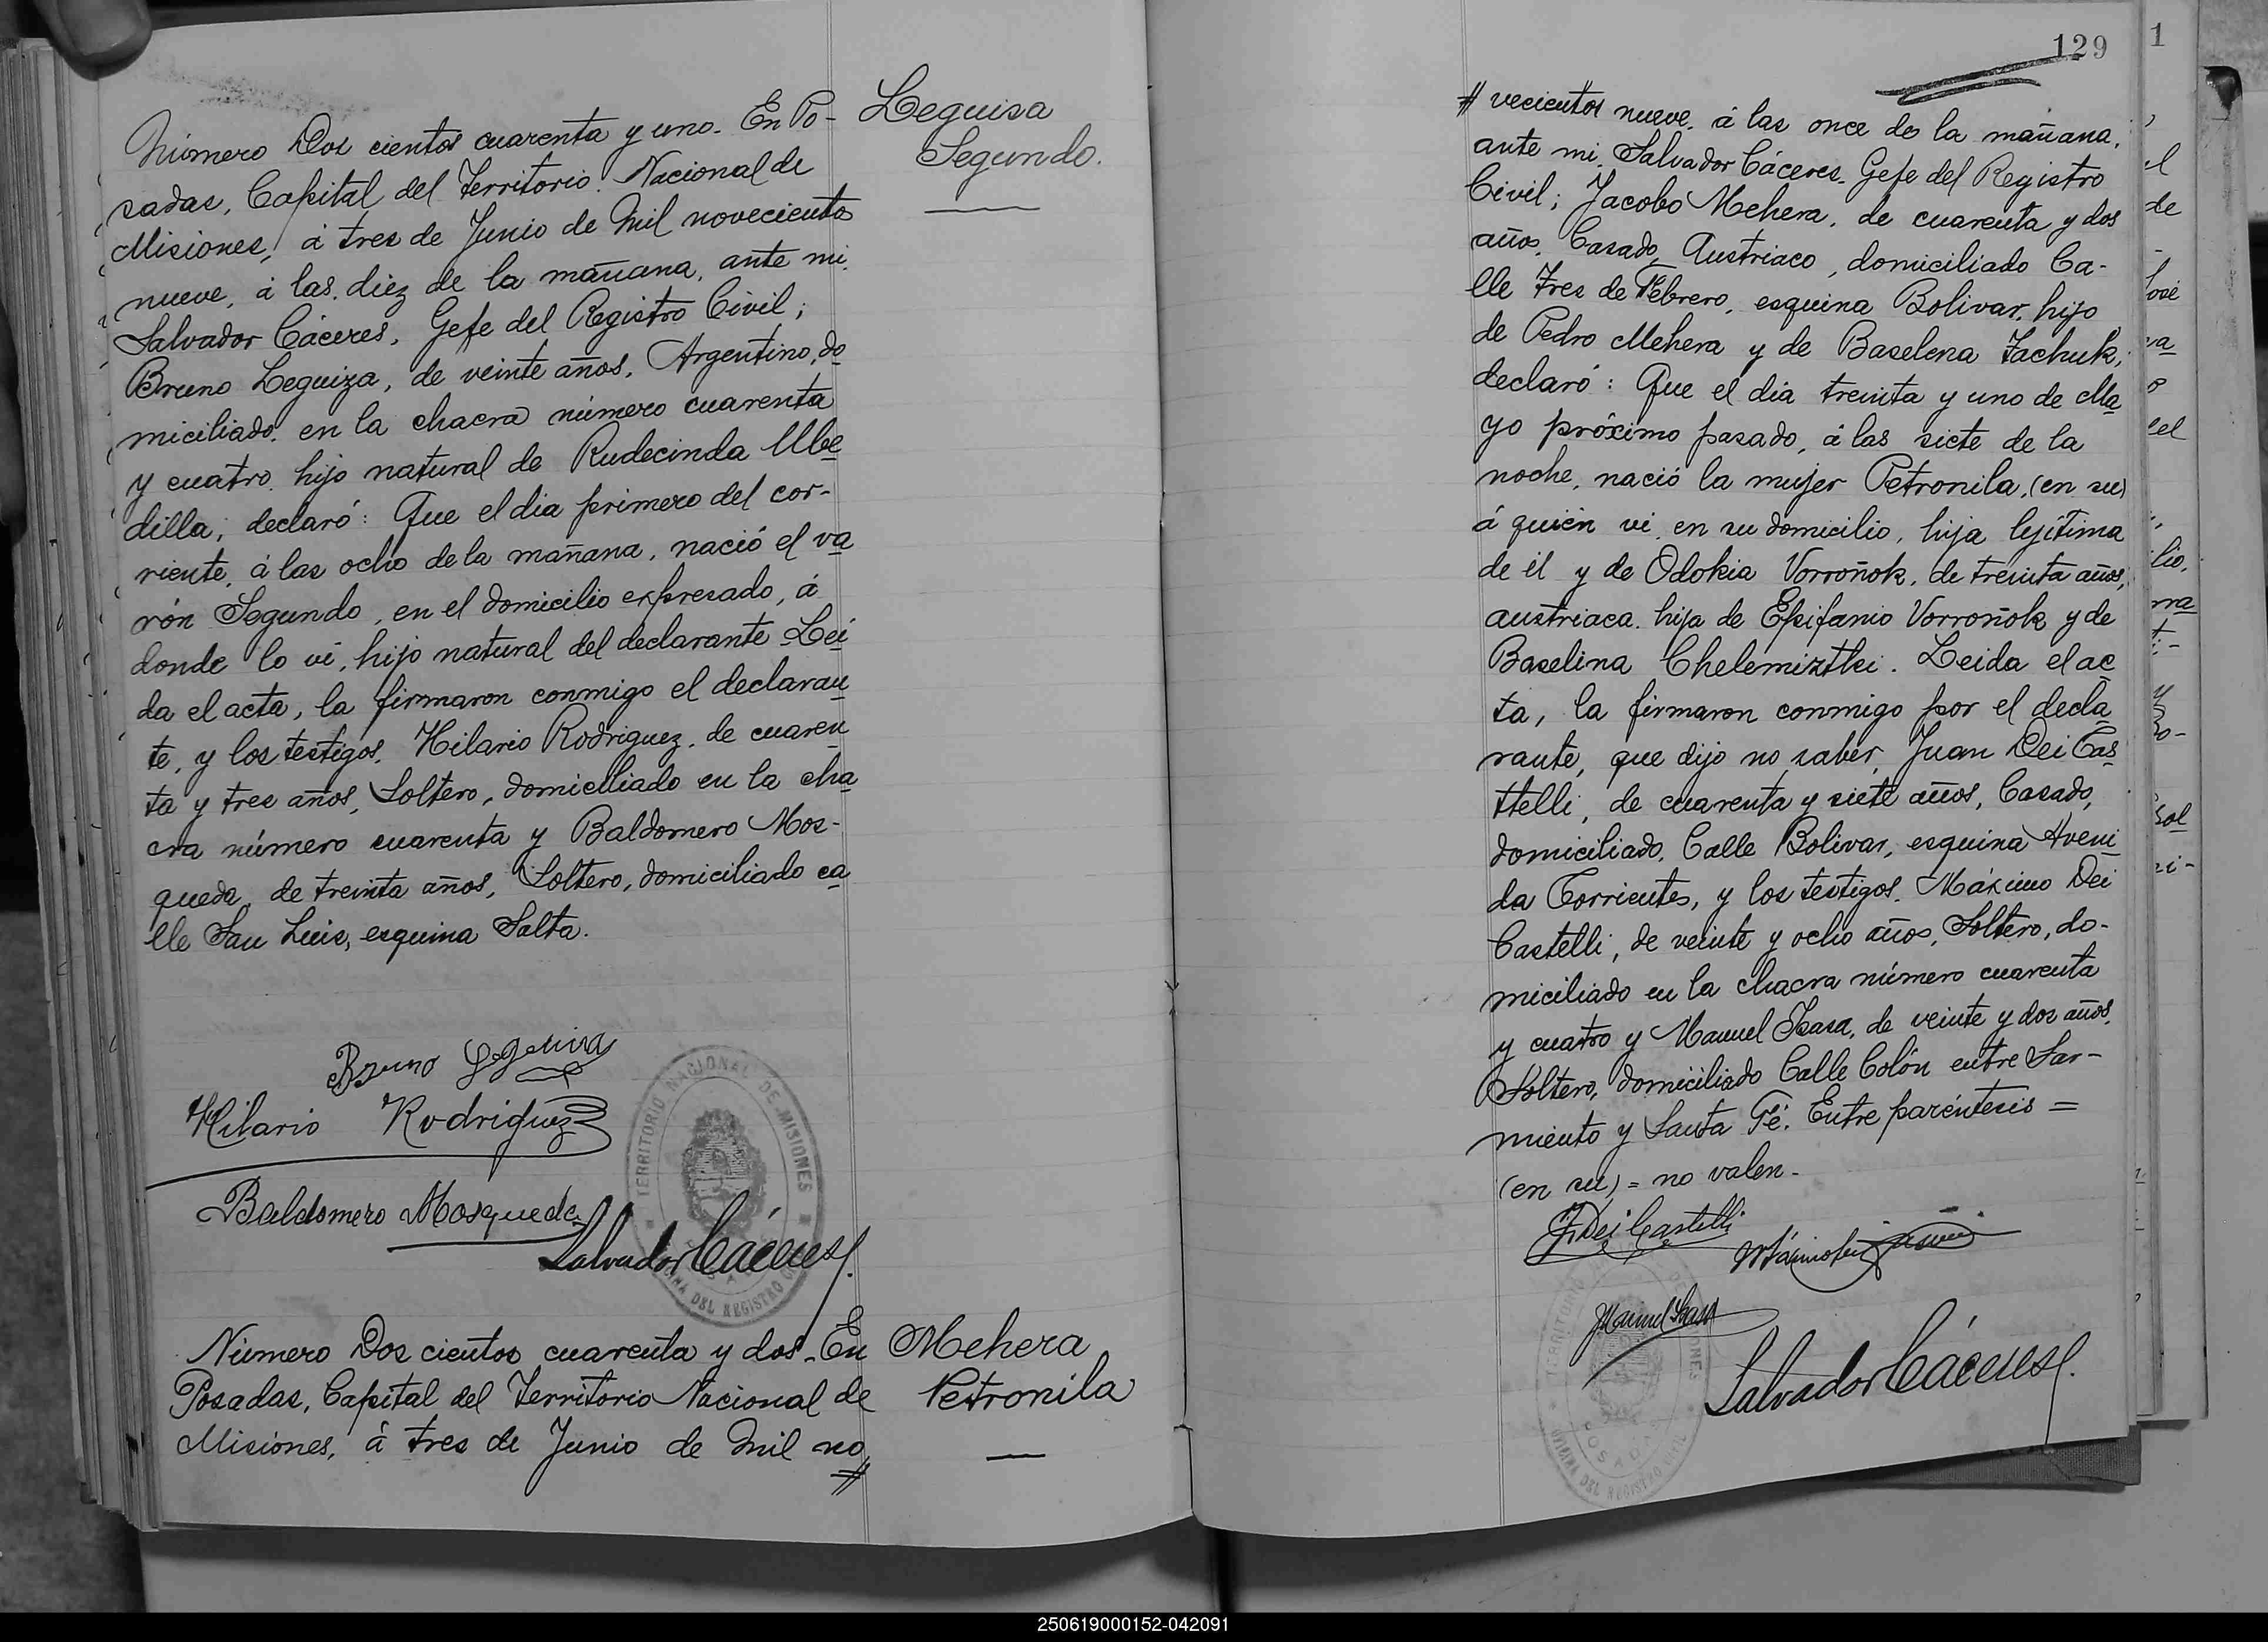 Número Dos cientos cuarenta y uno. En Po-
sadas, Capital del Territorio Nacional de
Misiones, á tres de Junio de mil novecientos
nueve, á las diez de la mañana, ante mi,
Salvador Cáceres, Gefe del Registro Civil;
Bruno Leguiza, de veinte años, Argentino, do
miciliado en la chacra número cuarenta
y cuatro, hijo natural de Rudecinda Ube
dilla; declaró: Que el dia primero del cor-
riente, á las ocho de la mañana, nació el va
rón Segundo, en el domicilio expresado, á
donde lo ví, hijo natural del declarante. Lei
da el acta, la firmaron conmigo el declaran
te, y los testigos, Hilario Rodriguez, de cuaren
ta y tres años, Soltero, domiciliado en la cha
cra número cuarenta y Baldomero Mos-
queda, de treinta años, Soltero, domiciliado ca
lle San Luis, esquina Salta.
Leguisa
Segundo.
Bruno Leguisa
Hilario Rodriguez
Baldomero Mosqueda
Salvador Cáceres
TERRITORIO NACIONAL DE MISIONES
OFICINA DEL REGISTRO CIVIL
Número Dos cientos cuarenta y dos. En
Posadas, Capital del Territorio Nacional de
Misiones, á tres de Junio de mil no
#
Mehera
Petronila
129
# vecientos nueve, á las once de la mañana,
ante mi, Salvador Cáceres, Gefe del Registro
Civil; Jacobo Mehera, de cuarenta y dos
años, Casado, Austriaco, domiciliado Ca-
lle Tres de Febrero, esquina Bolivar, hijo
de Pedro Mehera y de Baselena Tachuk;
declaró: Que el dia treinta y uno de Ma
yo próximo pasado, á las siete de la
noche, nació la mujer Petronila, (en su)
á quién ví en su domicilio, hija lejítima
de él y de Odokia Vorroñok, de treinta años,
austriaca, hija de Epifanio Vorroñok y de
Baselina Chelemiztki. Leida el ac
ta, la firmaron conmigo por el decla
rante, que dijo no saber, Juan Dei Cas
ttelli, de cuarenta y siete años, Casado,
domiciliado, Calle Bolivar, esquina Aveni
da Corrientes, y los testigos, Máximo Dei
Castelli, de veinte y ocho años, Soltero, do-
miciliado en la chacra número cuarenta
y cuatro y Manuel Isasa, de veinte y dos años,
Soltero, domiciliado Calle Colón entre Sar-
miento y Santa Fé. Entre paréntesis =
(en su) = no valen-
J. Dei Castelli
Manuel Isasa
Salvador Cáceres
POSADAS
OFICINA DEL REGISTRO CIVIL
1
250619000152-042091